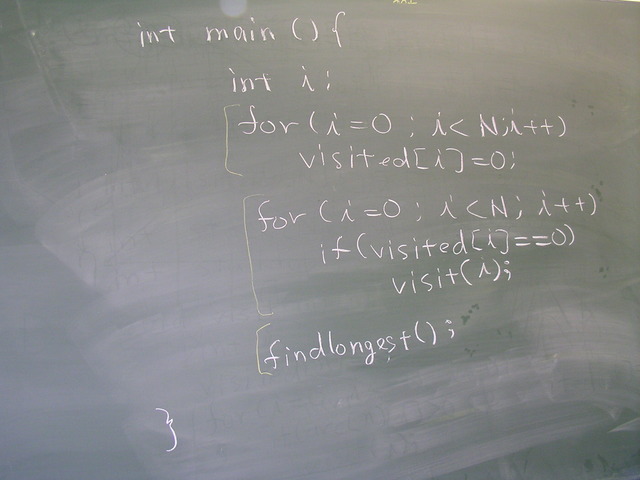 int main () {
int i;
for (i=0 ; i< N; i++)
visited[i]=0;
for (i=0 ; i<N; i++)
if(visited[i]==0)
visit(i);
findlongest();
}